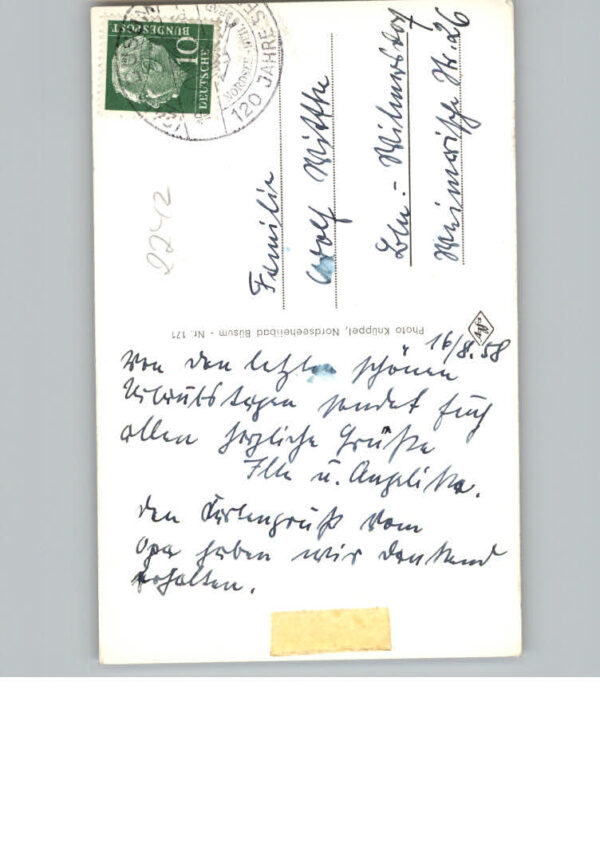 DEUTSCHE
BUNDESPOST
10
120 JAHRE
2242
Familie
Wolf Witthe
Bln.-Wilmersdorf
Weimarische Str. 26
Photo Knüppel, Nordseeheilbad Büsum - Nr. 171
16/8.58
Von den letzten schönen
Urlaubstagen sendet Euch
allen herzliche Grüße
Ille u. Angelika.
Den Kartengruß vom
Opa haben wir dankend
erhalten.